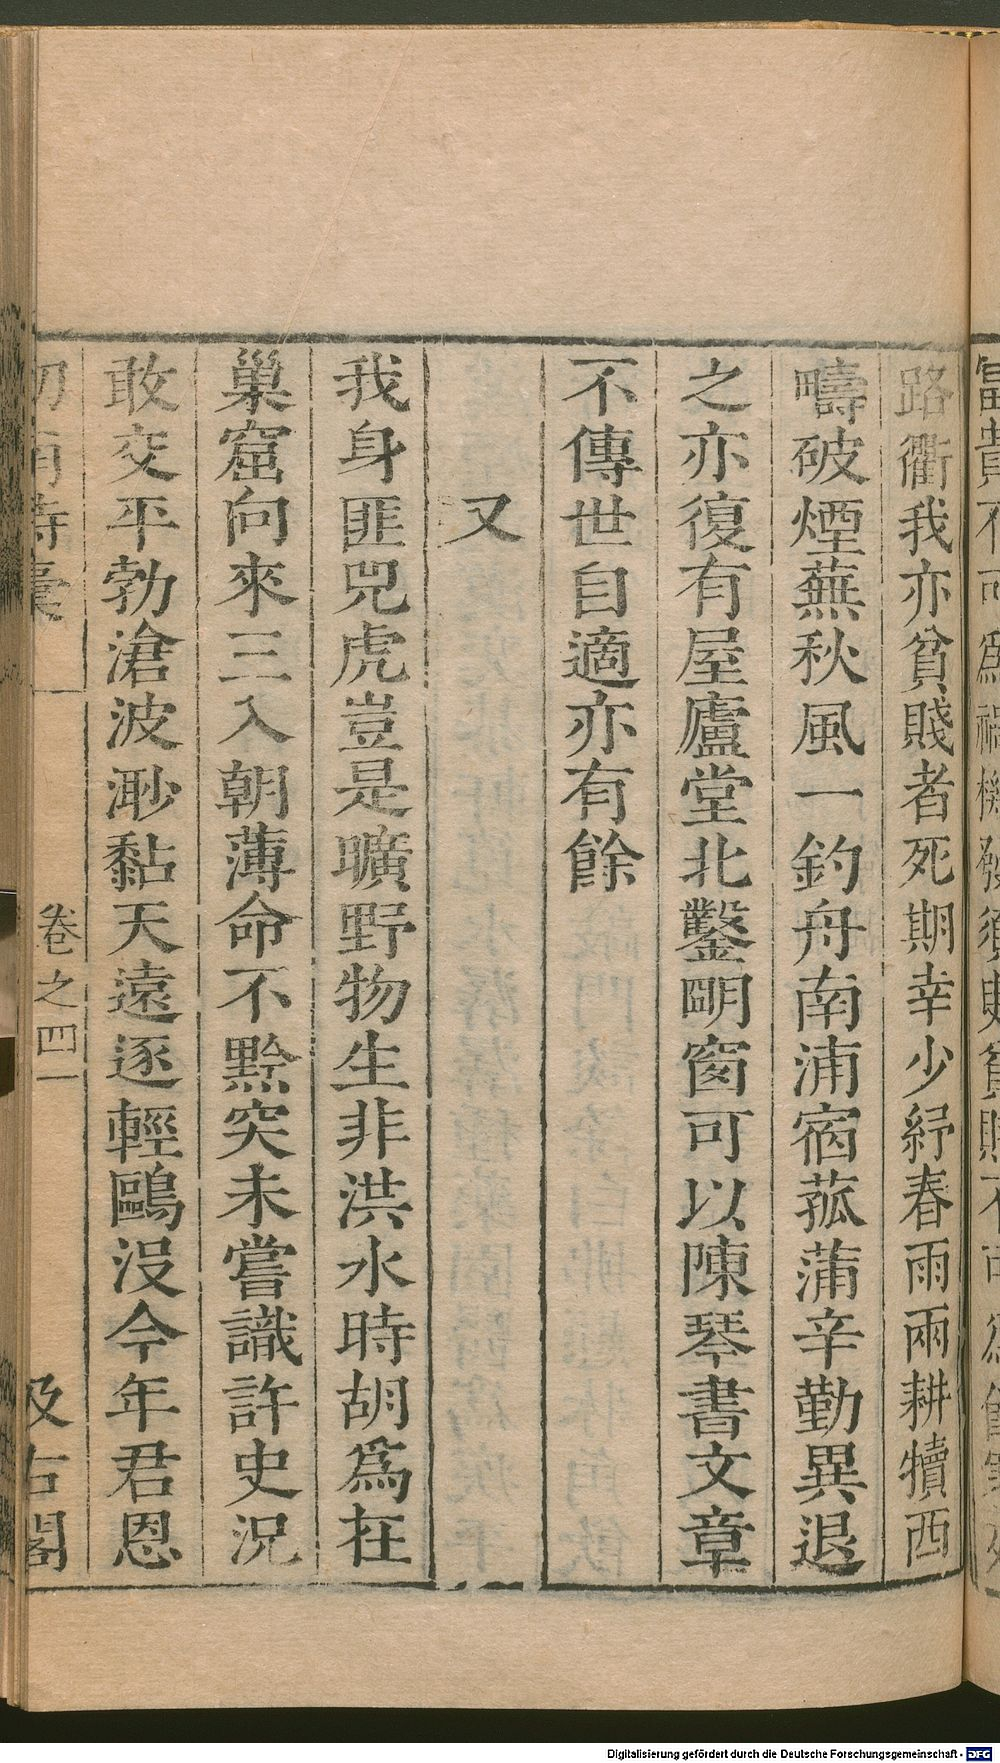 富貴不可爲禍機發須臾貧賤不可爲
路衢我亦貧賤者死期幸少紓春雨兩耕犢西
疇破煙蕪秋風一釣舟南浦宿菰蒲辛勤異退
之亦復有屋廬堂北鑿眀窗可以陳琴書文章
不傳世自適亦有餘
又
我身匪兕虎豈是曠野物生非洪水時胡爲在
巢窟向來三入朝薄命不黔突未嘗識許史況
敢交平勃滄波渺黏天遠逐輕鷗沒今年君恩
劍南詩稾 卷之四一 汲古閣
Digitalisierung gefördert durch die Deutsche Forschungsgemeinschaft - DFG